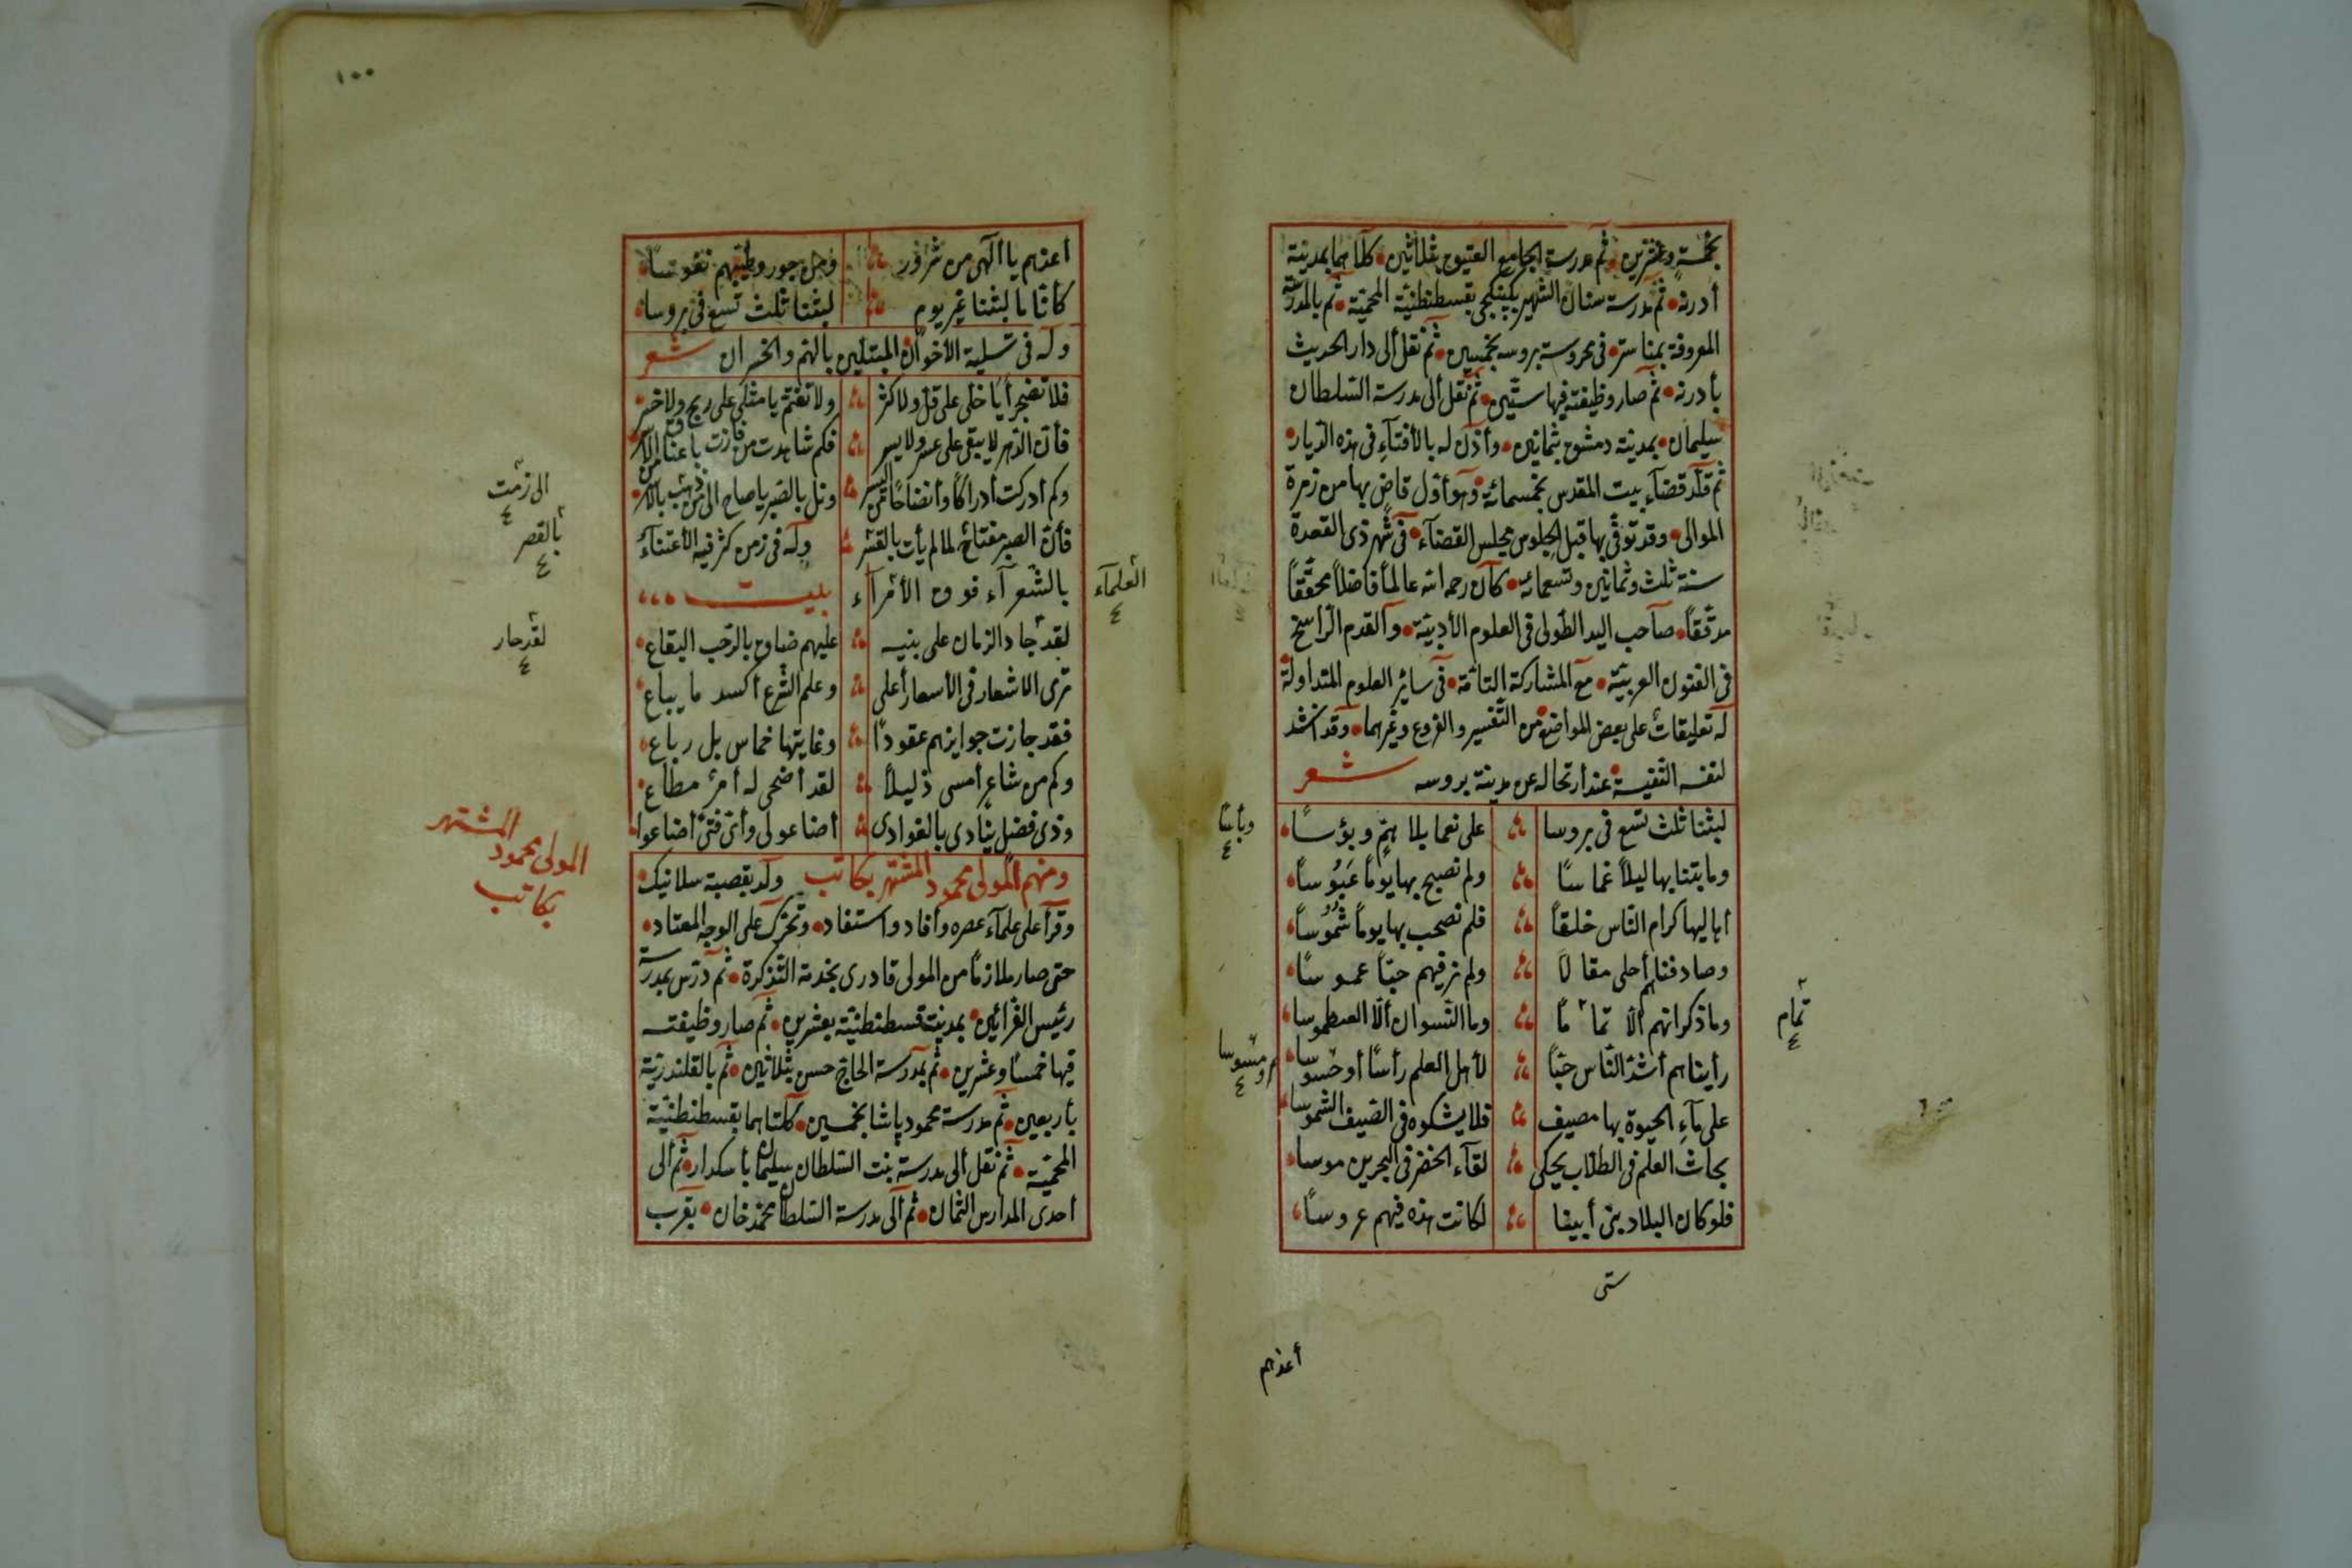 بخمسة وعشرين ثم مدرسة الجامع العتيق بثلاثين كلاهما بمدينة
أدرنه ثم مدرسة سنان الشهير بقسطنطنيّة المحميّة ثم بالمدرسة
المعروفة بمناستر في محروسة بروسه بخمسين ثم نقل ألى دار الحديث
بأدرنه ثم صار وظيفته فيها ستّين ثم نقل ألى مدرسة السّلطان
سليمان بمدينة دمشق بثمانين وأذن له بالأفتآء في هذه الدّيار
ثم قلّد قضآء بيت المقدس بخمسمائة وهو أوّل قاضٍ بها من زمرة
الموالى وقد توفّي بها قبل الجلوس مجلس القضآء في شهر ذى القعدة
سنة ثلث وثمانين وتسعمائه كان رحمه الله عالماً فاضلاً محقّقاً
مدقّقاً صاحب اليد الطّولى في العلوم الأدبيّة والقدم الرّاسخ
في الفنون العربيّة مع المشاركة التامّة في سائر العلوم المتداولة
له تعليقات على بعض المواضع من التّفسير والفروع وغيرهما وقد انشد
لنفسه النّفيسة عند أرتحاله عن مدينة بروسه شعر
لبثنا ثلث تسع في بروسا على نعما بلا همّ وبؤسًا
وما بتنا بها ليلاً غماسًا ولم نصبح بها يومًا عَبُوسًا
اهاليها كرام النّاس خلقاً فلم نصحب بها يوماً شُمُوسًا
وصادفناهم أحلى مقالاً ولم نر فيهم حبّاً عموسًا
وما ذكرانهم الّا تماماً وما النّسوان ألّا العيطموسا
رأيناهم أشدّ النّاس حبّاً لأهل العلم رأسًا أو خسوسا
على مآء الحيوة بها مصيف فلا يشكوه في الصّيف الشموسا
بحاث العلم في الطلّاب يحكى لقآء الخضر في البحرين موسا
فلو كان البلاد بنى أبينا لكانت هذه فيهم عروسًا
تمام
ستى
أعذهم
١٠٠
أعذهم ياالهى من شرور ومن جور وطيّبهم نفوسًا
كأنّا ما لبثنا غير يوم لبثنا ثلث تسع في بروسا
وله في تسلية الأخوان المبتلين بالهم والخسران شعر
فلا تضجر أيا خلى على قلّ ولا كثر ولا تغتمّ يا مثلى على ربح ولا خسر
فأن الدّهر لا يبقى على عسر ولا يسر فكم شاهدت من فازت باعناق
وكم أدركت أدراكًا ونل بالصّبر ياصاح
فأنّ الصبر مفتاح لما لم يأت بالقسر وله في زمن كثر فيه الأعتنآء
بالشّعرآء فوق الأمرآء بيت
لقد جاد الزمان على بنيه عليهم ضاق بالرّحب البقاع
ترى الاشعار في الأسعار أعلى وعلم الشّرع أكسد ما يباع
فقد جازت جوايزهم عقودًا وغايتها خماس بل رباع
وكم من شاعر أمسى ذليلاً لقد أضحى له أمر مطاع
وذى فضل ينادى بالغوادى أضاعونى وأىّ فتى أضاعوا
ومنهم المولى محمود المشتهر بكاتب ولد بقصبة سلانيك
وقرأ على علمآء عصره وأفاد واستفاد وتحرّك على الوجه المعتاد
حتى صار ملازمًا من المولى قادرى بخدمة التّذكرة ثم درّس بمدرسة
رئيس القرّائين بمدينة قسطنطنيّة بعشرين ثم صار وظيفته
فيها خمسًا وعشرين ثم بمدرسة الحاجّ حسن بثلاثين ثم بالقلندريّة
بأربعين ثم مدرسة محمود پاشا بخمسين كلتاهما بقسطنطنيّة
المحميّة ثم نقل ألى مدرسة بنت السّلطان سليمان بأسكدار ثم ألى
أحدى المدارس الثّمان ثم ألى مدرسة السّلطان محمّد خان بقرب
العلمآء
بالقصر
لقد حار
المولى محمود المشتهر
بكاتب